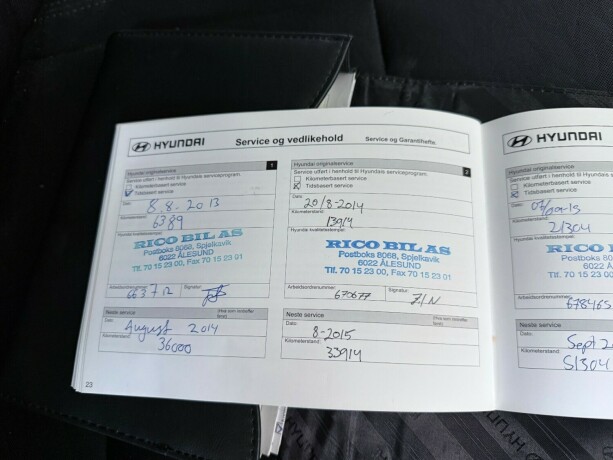 HYUNDAI Service og vedlikehold Service og Garantihefte.
Hyundai originalservice 1
Service utført i henhold til Hyundais serviceprogram.
Kilometerbasert service
Tidsbasert service
Dato:
8.8.2013
Kilometerstand:
6389
Hyundai kvalitetsstempel:
RICO BIL AS
Postboks 8068, Spjelkavik
6022 ÅLESUND
Tlf. 70 15 23 00, Fax 70 15 23 01
Arbeidsordrenummer: Signatur:
Neste service
Dato:
August 2014
Kilometerstand:
36000
23
Hyundai originalservice 2
Service utført i henhold til Hyundais serviceprogram.
Kilometerbasert service
Tidsbasert service
Dato:
20/8-2014
Kilometerstand:
13914
Hyundai kvalitetsstempel:
RICO BIL AS
Postboks 8068, Spjelkavik
6022 ÅLESUND
Tlf. 70 15 23 00, Fax 70 15 23 01
Arbeidsordrenummer: Signatur:
670677
Neste service
Dato:
8-2015
Kilometerstand:
33914
HYUNDAI
Hyundai originalservice
Service utført i henhold til Hyundais
Kilometerbasert service
Tidsbasert service
Dato:
Kilometerstand:
21304
Hyundai kvalitetsstempel:
RICO B
Postboks 8068
6022 Å
Tlf. 70 15 23 00,
Arbeidsordrenummer:
678465
Neste service
Dato:
Sept 2
Kilometerstand:
51304